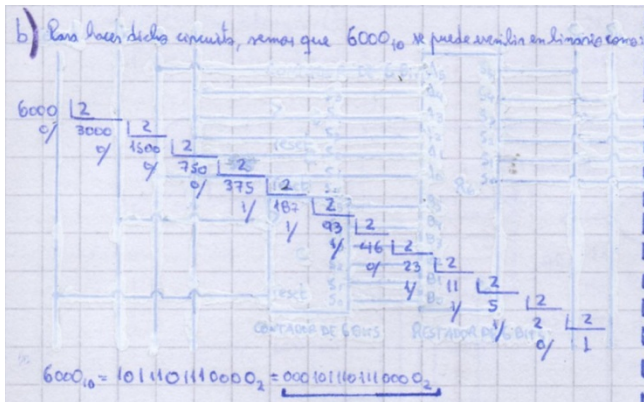 b) Para hacer dicho circuito, vemos que 6000₁₀ se puede escribir en binario como:
6000 2
0/ 3000 2
0/ 1500 2
0/ 750 2
0/ 375 2
1/ 187 2
1/ 93 2
1/ 46 2
0/ 23 2
1/ 11 2
1/ 5 2
1/ 2 2
0/ 1
CONTADOR DE 6 BITS RESTADOR DE 6 BITS
6000₁₀ = 1011101110000₂ = 0001011101110000₂